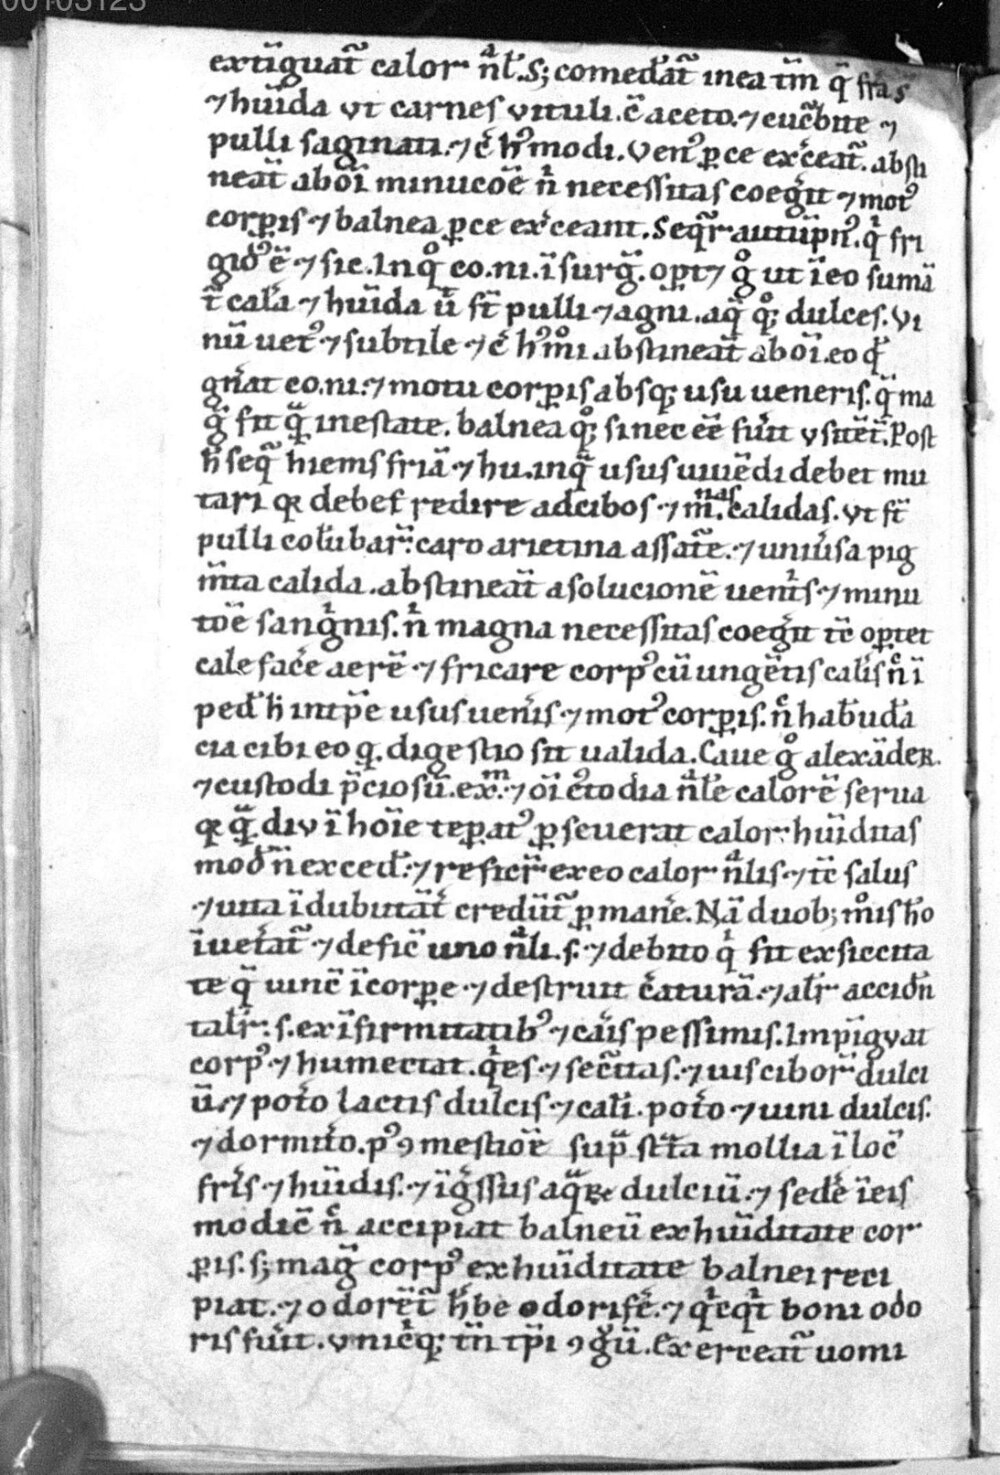 00103123
extīguat᷑ calor nͣl̄. S; comedāt᷑ īnea tm̄ q̄ fr̄a s̄
⁊ huīda vt carnes vituli. c̄ aceto. ⁊ cuc᷑bite ⁊
pulli saginati. ⁊ c̄ hꝰ modi. Venꝰ ꝑce exᵉceat᷑. absti
neat᷑ aboī minucōe n̄ necessitas coegīt ⁊ motꝰ
corꝑis ⁊ balnea ꝑce exᵉceant. Seqr̄ autūpnꝰ. qⁱ fri
gidꝰ ē ⁊ sic. In qͦ co. ni. ī surḡ. oꝑt; gͦ ut ī eo sumā
t᷑ cal̄a ⁊ huīda u͛ st̄ pulli ⁊ agni. aq̄ qͦꝫ dulces. Vi
nū uetꝰ ⁊ subtile ⁊ c̄ hꝰ mͦi abstineat᷑ aboī. eo qd̄
gn̄at co. ni. ⁊ motu corꝑis absqꝫ usu ueneris. q̄ ma
gͥ fit qͣ in estate. balnea qͦꝫ si nec ēe fūit vsitēt᷑. Post
h̄ seq᷑ hiems fr̄ia ⁊ hu. in qͣ usus uiuēdi debet mu
tari qꝛ debet redire ad cibos ⁊ m̄. nas calidas. vt st̄
pulli colūbar᷑. caro arietina assat᷑e. ⁊ uniu͛sa pig
m̄ta calida. abstineat᷑ a solucionē uent͛s. ⁊ minu
tōe sangͥnis. n̄ magna necessitas coegīt tc̄ oꝑtet
calefac͛e aerē ⁊ fricare corpꝰ cū ungēt̄is cal̄is nͨ ī
ped̄ h̄ int̄ꝑe usus uen͛is. ⁊ motꝰ corꝑis. nͨ hab̄udā
cia cibi eo q. digestio sit ualida. Caue gͦ alexādeR.
⁊ custodi p̄ciosū. exᵐ. ⁊ oī c̄todia nͣl̄e calorē serua
qꝛ qͣ. div ī hoīe teꝑatꝰ ꝑseuerat calor. huīditas
mod̄ n̄ exced̄. ⁊ reficir᷑ ex eo calor nͣl̄is. ⁊ tc̄ salus
⁊ uita īdubitāt͛ credūt᷑ ꝑman͛e. Nā duob; mͦis hō
īuet͛at᷑ ⁊ defic̄ uno nͣl̄i. s. ⁊ debito qⁱ fit ex siccita
te q̄ uinc̄ ī corꝑe ⁊ destruit c͛aturā. ⁊ alr̄ accidn̄
talr̄. s. ex īfirmitatibꝰ ⁊ cāis pessimis. Impīgvat
corpꝰ ⁊ humectat. qͥes. ⁊ sec᷑itas. ⁊ uis cibor᷑ dulci
ū. ⁊ potō lactis dulcis. ⁊ cal̄i. potō ⁊ uini dulcis.
⁊ dormitō. pꝰ ꝯmestiōē sup̄ st᷑ta mollia ī loc̄
fr̄is ⁊ huīdis. ⁊ īgͥssus aqͣꝛ dulciū. ⁊ sed͛e ī eis
modic̄ nͨ accipiat balneū ex huīditate cor
ꝑis. s; magͥ corpꝰ ex huīditate balnei reci
piat. ⁊ odorēt᷑ h͛be odorife͛. ⁊ qͥcqͥt boni odo
ris fūit. vnicͥqꝫ tn̄ tꝑi ꝯgͥū. Exerceat᷑ uomi